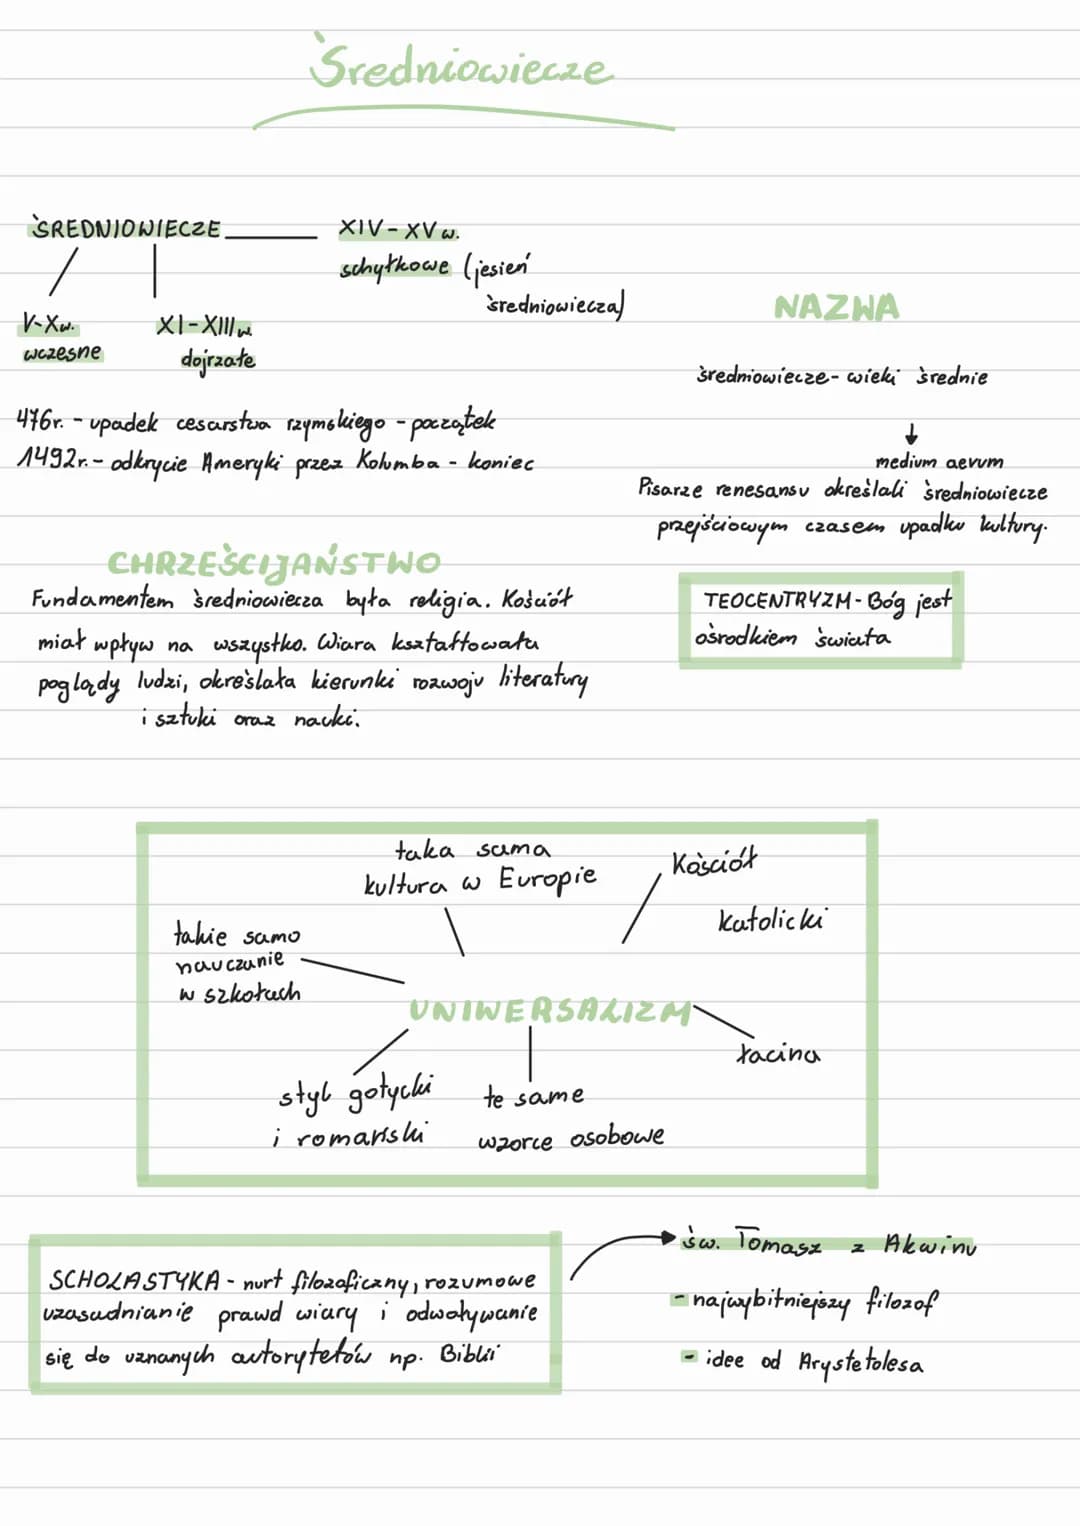 Średniowiecze
ŚREDNIOWIECZE
XIV - XV w.
schyłkowe (jesień
średniowiecza)
V-Xw.
wczesne
XI-XIII w.
dojrzałe
476r. - upadek cesarstwa rzymskiego - początek
1492r. - odkrycie Ameryki przez Kolumba - koniec
NAZWA
średniowiecze - wieki średnie
↓
medium aevum
Pisarze renesansu określali średniowiecze
przejściowym czasem upadku kultury.
CHRZEŚCIJAŃSTWO
Fundamentem średniowiecza była religia. Kościół
miał wpływ na wszystko. Wiara kształtowała
poglądy ludzi, określała kierunki rozwoju literatury
i sztuki oraz nauki.
TEOCENTRYZM - Bóg jest
ośrodkiem świata
taka sama
kultura w Europie
Kościół
katolicki
takie samo
nauczanie
w szkołach
UNIWERSALIZM
łacina
styl gotycki
i romański
te same
wzorce osobowe
SCHOLASTYKA - nurt filozoficzny, rozumowe
uzasadnianie prawd wiary i odwoływanie
się do uznanych autorytetów np. Biblii
św. Tomasz z Akwinu
- najwybitniejszy filozof
- idee od Arystetolesa